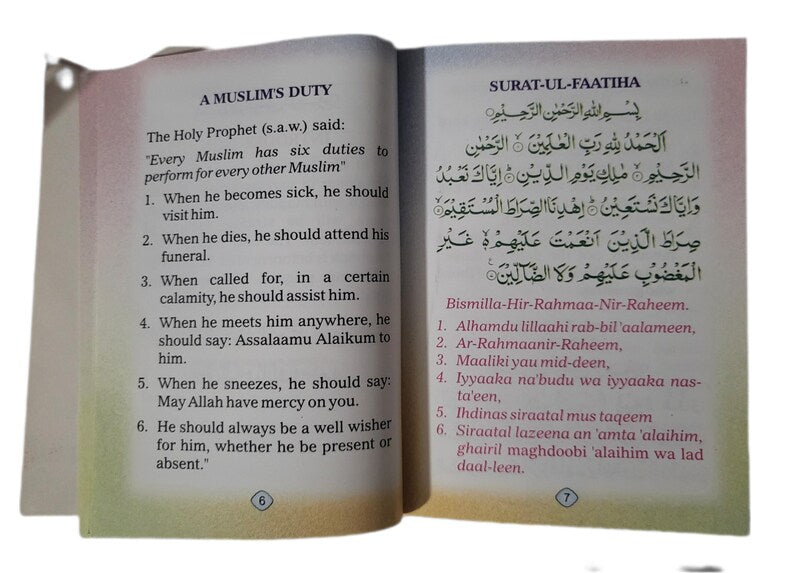 A MUSLIM'S DUTY
The Holy Prophet (s.a.w.) said:
"Every Muslim has six duties to
perform for every other Muslim"
1. When he becomes sick, he should
visit him.
2. When he dies, he should attend his
funeral.
3. When called for, in a certain
calamity, he should assist him.
4. When he meets him anywhere, he
should say: Assalaamu Alaikum to
him.
5. When he sneezes, he should say:
May Allah have mercy on you.
6. He should always be a well wisher
for him, whether he be present or
absent."
6
SURAT-UL-FAATIHA
بِسْمِ اللهِ الرَّحْمٰنِ الرَّحِيْمِ۝
اَلْحَمْدُ لِلّٰهِ رَبِّ الْعٰلَمِيْنَ ۝ الرَّحْمٰنِ
الرَّحِيْمِ ۝ مٰلِكِ يَوْمِ الدِّيْنِ ۝ اِيَّاكَ نَعْبُدُ
وَاِيَّاكَ نَسْتَعِيْنُ ۝ اِهْدِنَا الصِّرَاطَ الْمُسْتَقِيْمَ ۝
صِرَاطَ الَّذِيْنَ اَنْعَمْتَ عَلَيْهِمْ ۝ غَيْرِ
الْمَغْضُوْبِ عَلَيْهِمْ وَلَا الضَّآلِّيْنَ ۝
Bismilla-Hir-Rahmaa-Nir-Raheem.
1. Alhamdu lillaahi rab-bil 'aalameen,
2. Ar-Rahmaanir-Raheem,
3. Maaliki yau mid-deen,
4. Iyyaaka na'budu wa iyyaaka nas-
ta'een,
5. Ihdinas siraatal mus taqeem
6. Siraatal lazeena an 'amta 'alaihim,
ghairil maghdoobi 'alaihim wa lad
daal-leen.
7